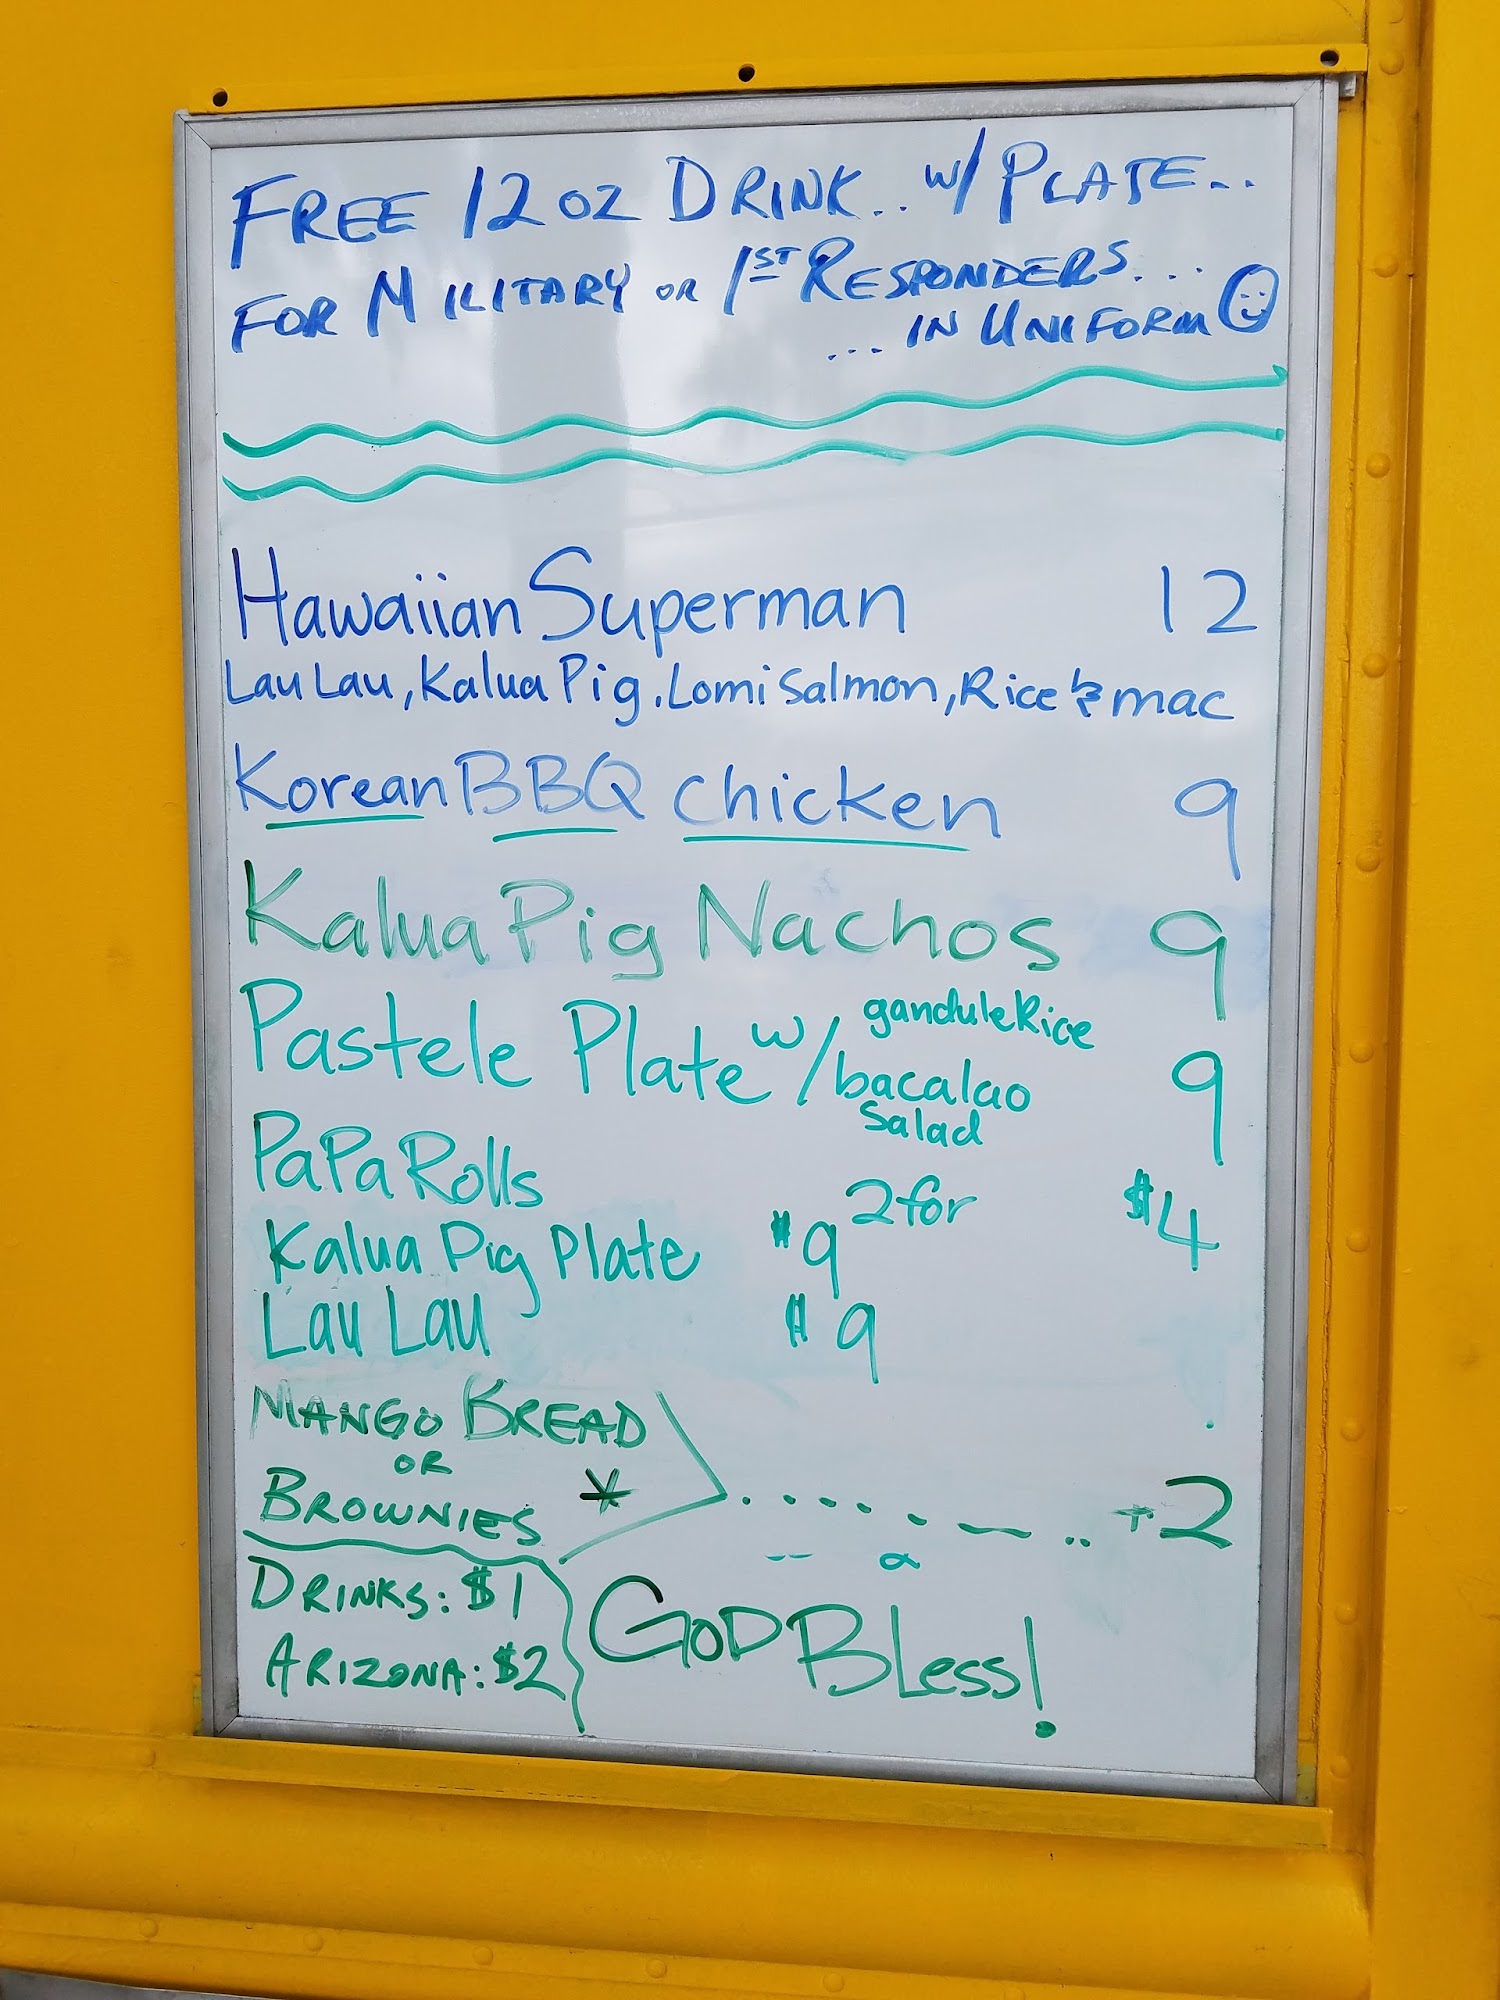 FREE 12 OZ DRINK.. W/ PLATE..
FOR MILITARY OR 1ST RESPONDERS...
... IN UNIFORM
Hawaiian Superman 12
Lau Lau, Kalua Pig, Lomi Salmon, Rice & mac
Korean BBQ chicken 9
Kalua Pig Nachos 9
Pastele Plate w/ gandule Rice bacalao Salad 9
PaPa Rolls 2 for $4
Kalua Pig Plate $9
Lau Lau $9
MANGO BREAD
OR
BROWNIES * +2
DRINKS: $1
ARIZONA: $2
GOD BLess!